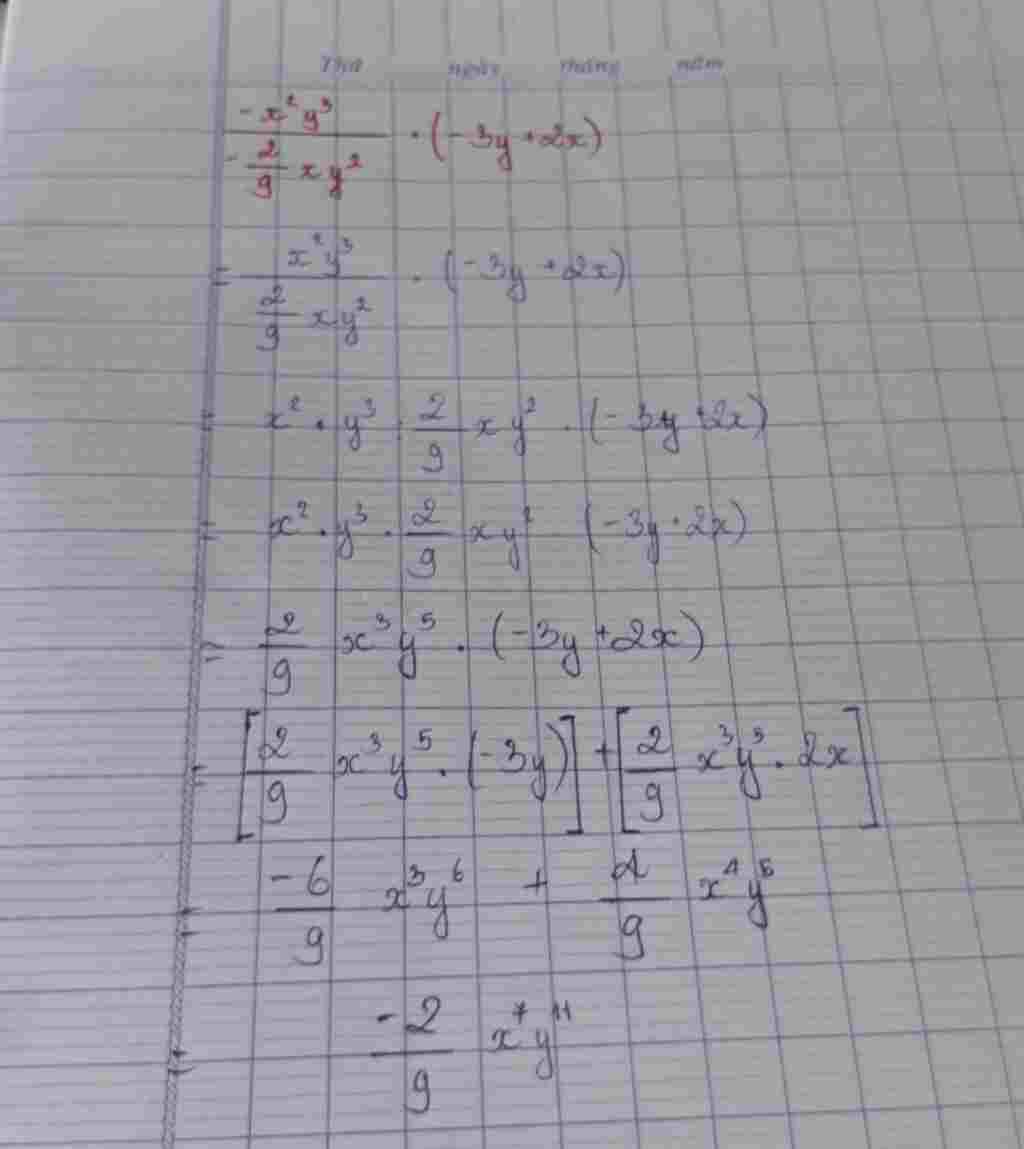 Thứ ngày tháng năm
\frac{-x^2y^3}{-\frac{2}{9}xy^2} \cdot (-3y+2x)
= \frac{x^2y^3}{\frac{2}{9}xy^2} \cdot (-3y+2x)
= x^2 \cdot y^3 \cdot \frac{2}{9}xy^2 \cdot (-3y+2x)
= x^2 \cdot y^3 \cdot \frac{2}{9}xy^2 (-3y \cdot 2x)
= \frac{2}{9}x^3y^5 \cdot (-3y+2x)
= [\frac{2}{9}x^3y^5 \cdot (-3y)] + [\frac{2}{9}x^3y^5 \cdot 2x]
= \frac{-6}{9}x^3y^6 + \frac{4}{9}x^4y^5
= \frac{-2}{9}x^7y^{11}